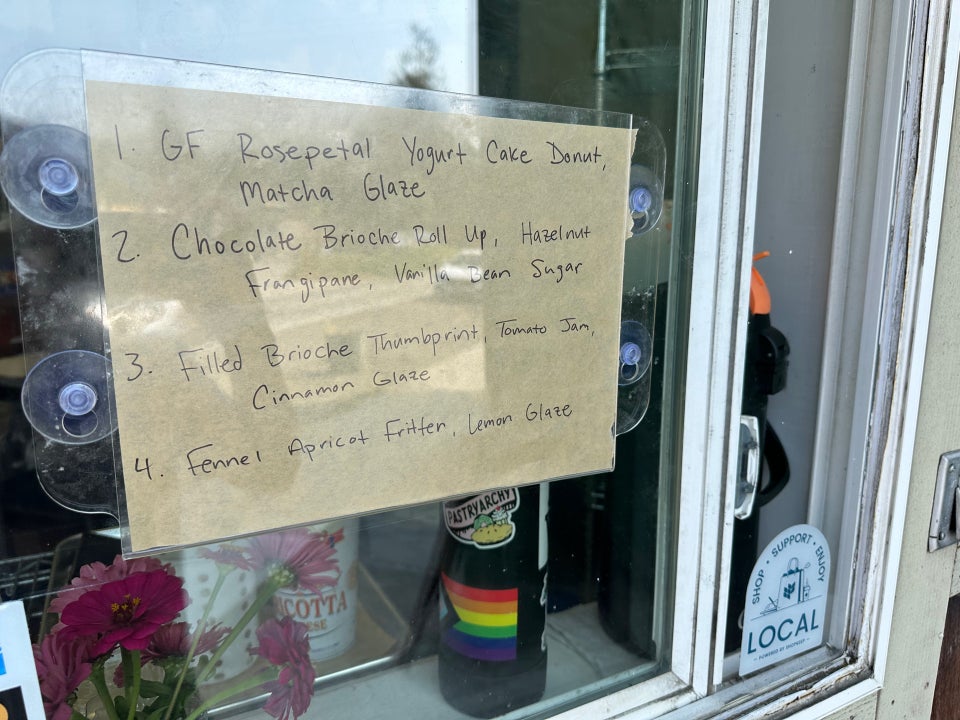 1. GF Rosepetal Yogurt Cake Donut,
Matcha Glaze
2. Chocolate Brioche Roll Up, Hazelnut
Frangipane, Vanilla Bean Sugar
3. Filled Brioche Thumbprint, Tomato Jam,
Cinnamon Glaze
4. Fennel Apricot Fritter, Lemon Glaze
PASTRYARCHY
COTTA
SHOP • SUPPORT • ENJOY
LOCAL